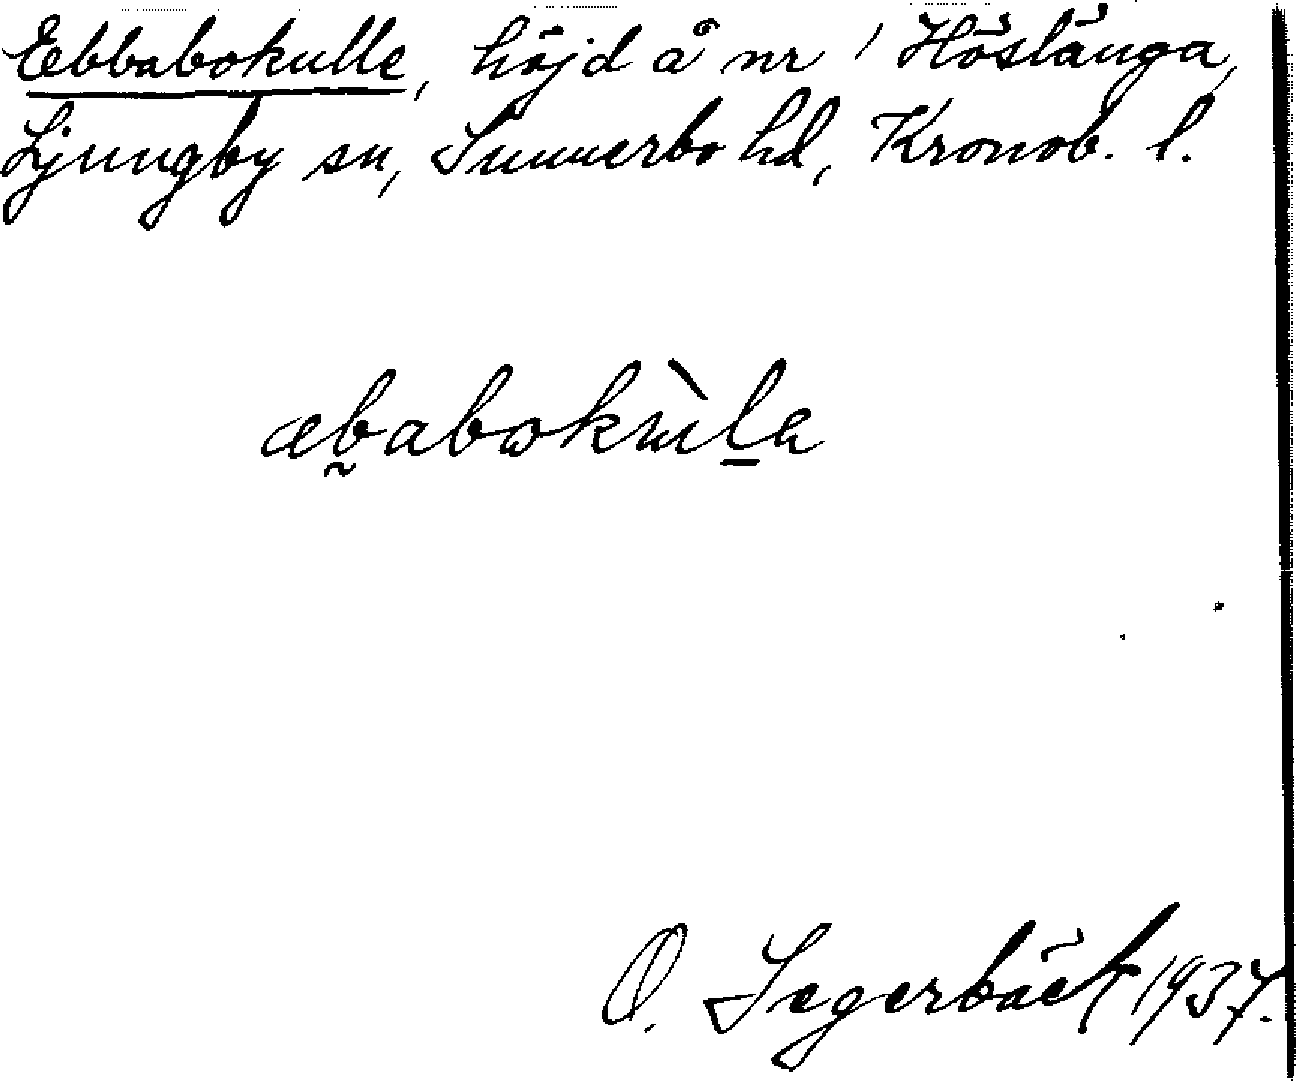 Ebbabokulle, höjd å nr 1 Höslänga,
Ljungby sn, Sunnerbo hd, Kronob. l.
æb̰abωkɯ̀l̲a
O. Segerbäck 1937.